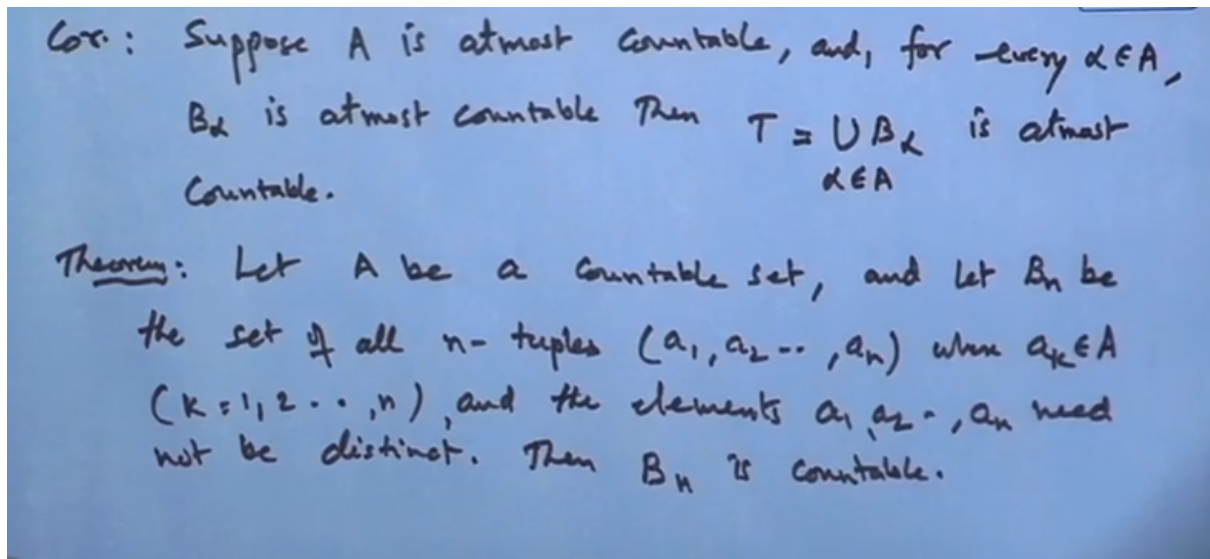 Cor.: Suppose A is atmost Countable, and, for every α∈A,
Bα is atmost countable Then T = ∪ Bα is atmost
α∈A
Countable.
Theorem: Let A be a Countable set, and let Bn be
the set of all n-tuples (a1, a2 .. , an) when ak∈A
(k=1,2 . . ,n), and the elements a1, a2 -, an need
not be distinct. Then Bn is countable.